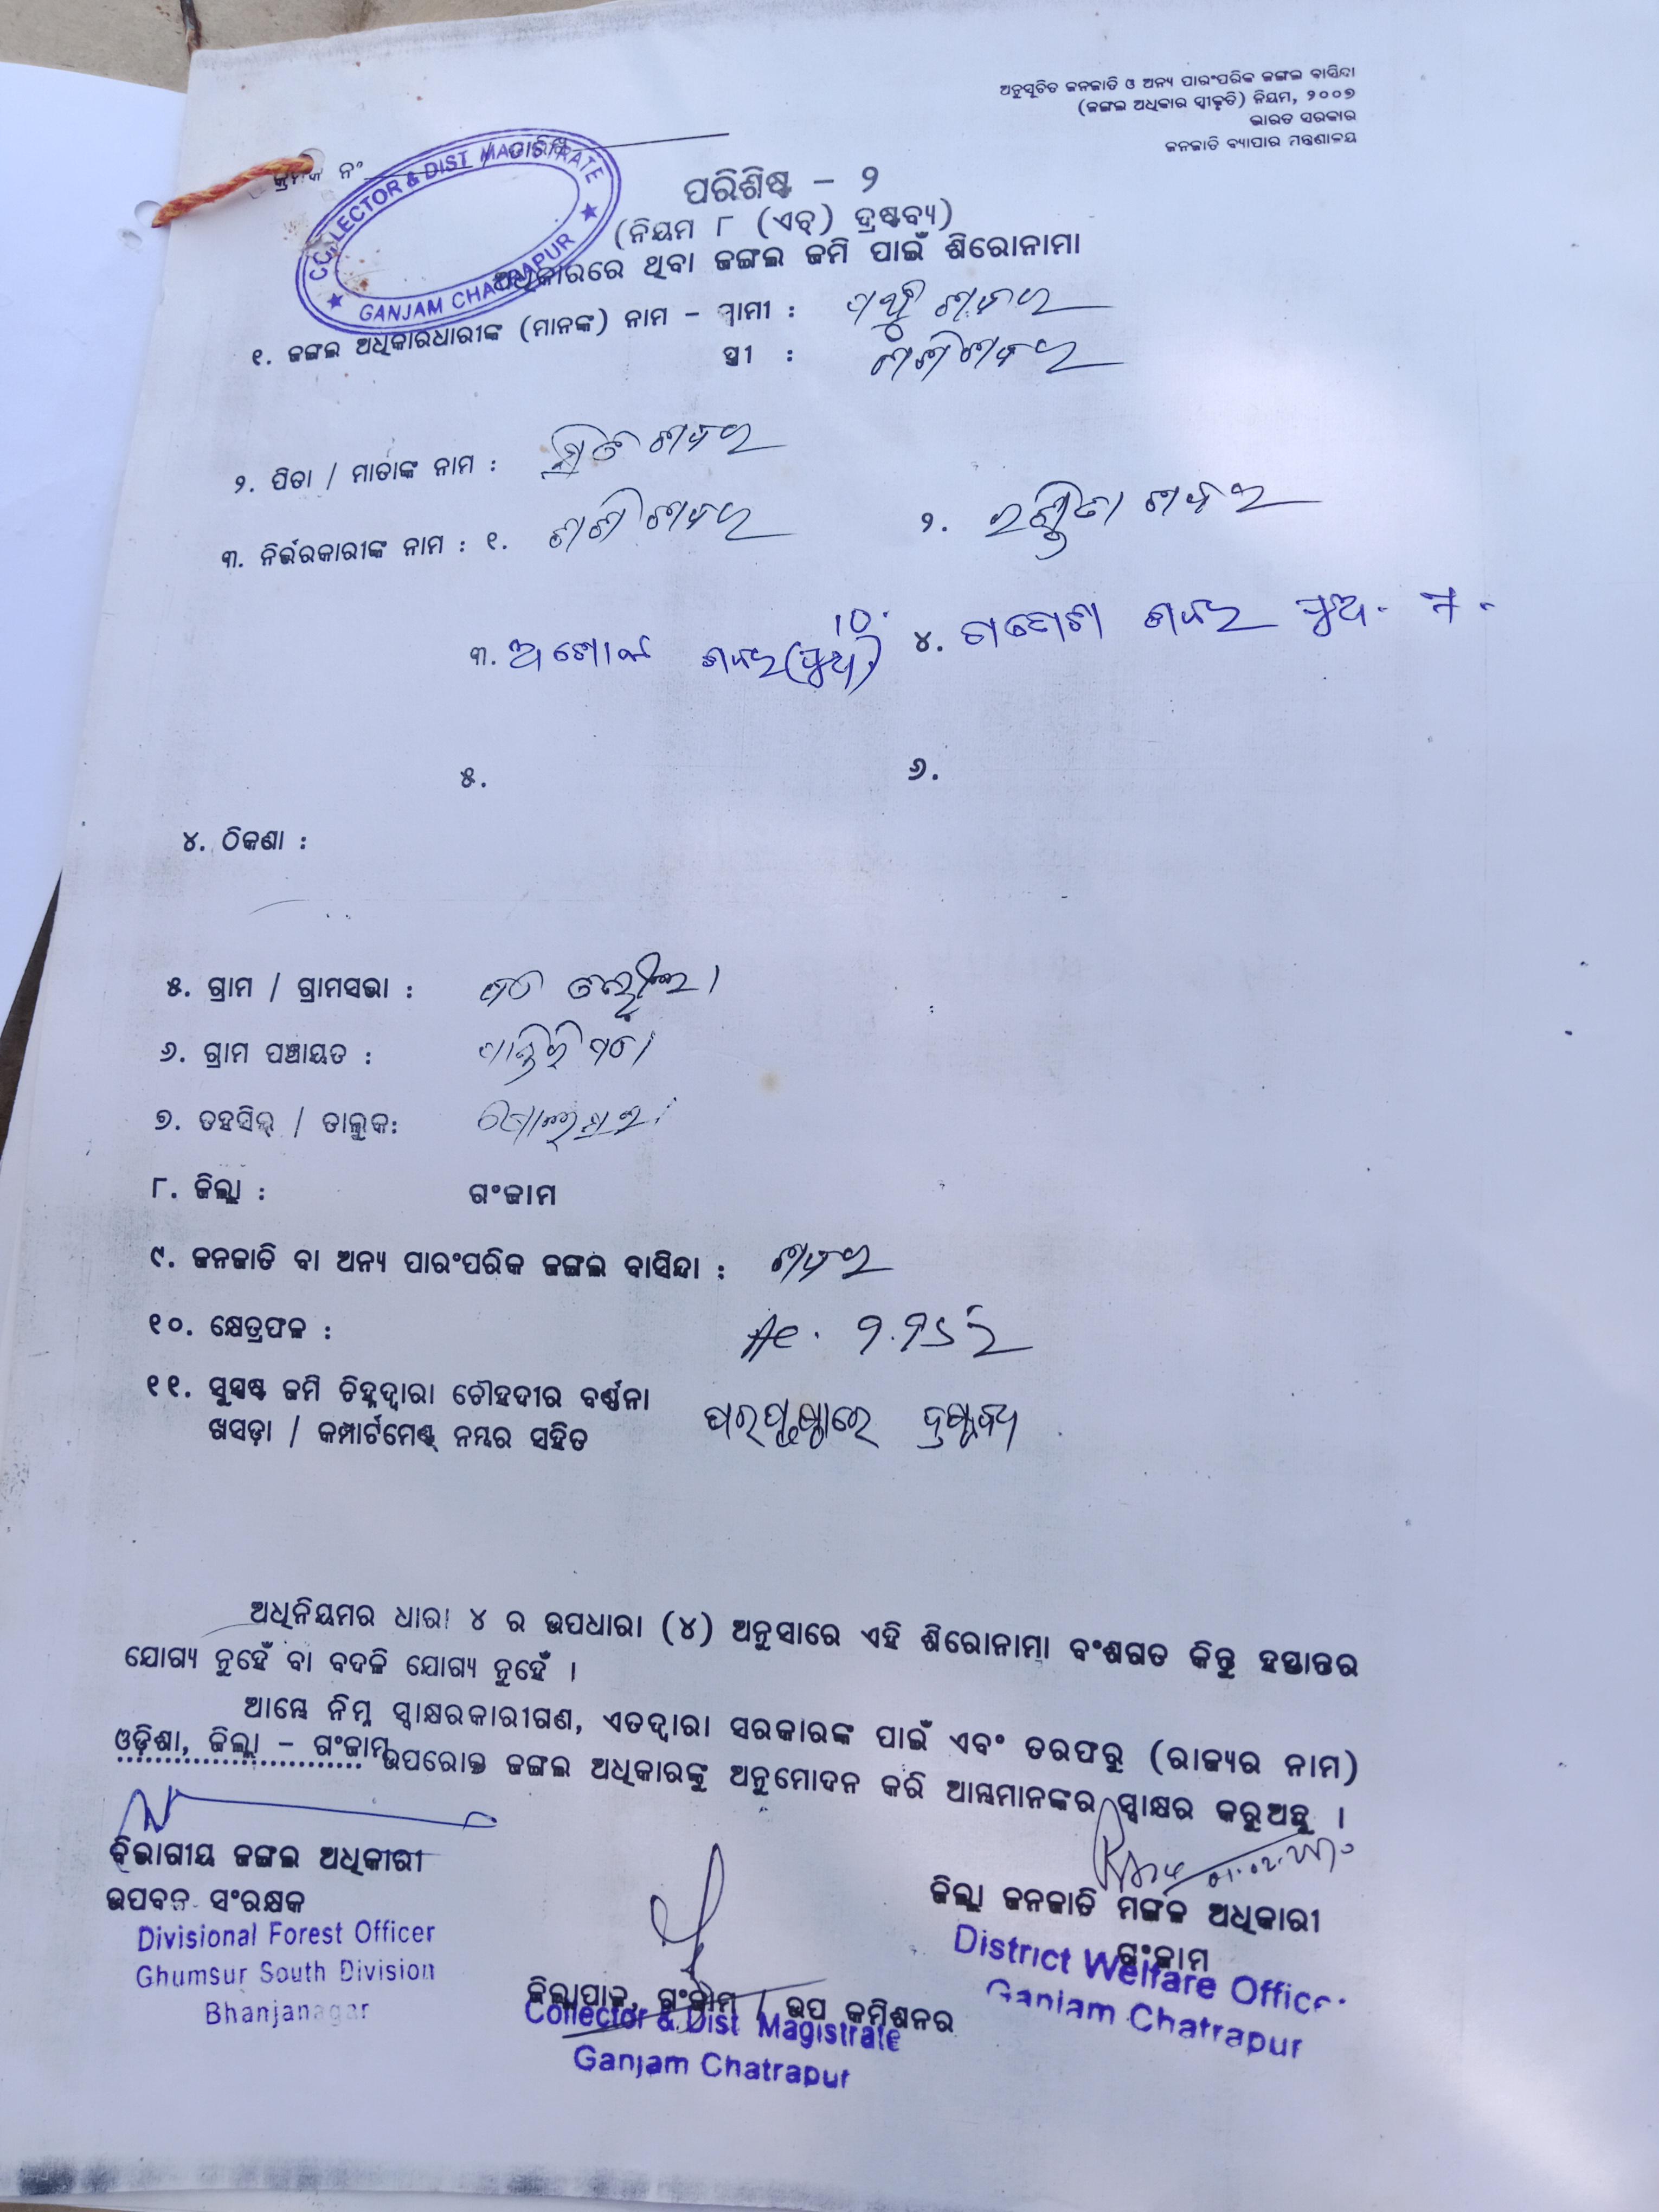 ଅନୁସୂଚିତ ଜନଜାତି ଓ ଅନ୍ୟ ପାରଂପରିକ ଜଙ୍ଗଲ ବାସିନ୍ଦା
(ଜଙ୍ଗଲ ଅଧିକାର ସ୍ୱୀକୃତି) ନିୟମ, ୨୦୦୭
ଭାରତ ସରକାର
ଜନଜାତି ବ୍ୟାପାର ମନ୍ତ୍ରଣାଳୟ
କ୍ରମିକ ନଂ / ତାରିଖ
COLLECTOR & DIST MAGISTRATE
GANJAM CHATRAPUR
ପରିଶିଷ୍ଟ - ୨
(ନିୟମ ୮ (ଏଚ୍) ଦ୍ରଷ୍ଟବ୍ୟ)
ଅଧିକାରରେ ଥିବା ଜଙ୍ଗଲ ଜମି ପାଇଁ ଶିରୋନାମା
୧. ଜଙ୍ଗଲ ଅଧିକାରଧାରୀଙ୍କ (ମାନଙ୍କ) ନାମ - ସ୍ୱାମୀ : ଶବର
ସ୍ତ୍ରୀ : ଶଶି ଶବର
୨. ପିତା / ମାତାଙ୍କ ନାମ : ଶବର
୩. ନିର୍ଭରକାରୀଙ୍କ ନାମ : ୧. ଶଶି ଶବର ୨. ଶବର
୩. ଅଶୋକ ଶବର (ପୁଅ) 10. ୪. ଗଣେଶ ଶବର ପୁଅ-
୫. ୬.
୪. ଠିକଣା :
୫. ଗ୍ରାମ / ଗ୍ରାମସଭା :
୬. ଗ୍ରାମ ପଞ୍ଚାୟତ :
୭. ତହସିଲ୍ / ତାଲୁକ:
୮. ଜିଲ୍ଲା : ଗଂଜାମ
୯. ଜନଜାତି ବା ଅନ୍ୟ ପାରଂପରିକ ଜଙ୍ଗଲ ବାସିନ୍ଦା : ଶବର
୧୦. କ୍ଷେତ୍ରଫଳ : Ac.
୧୧. ସୁସ୍ପଷ୍ଟ ଜମି ଚିହ୍ନଦ୍ୱାରା ଚୌହଦୀର ବର୍ଣ୍ଣନା
ଖସଡ଼ା / କମ୍ପାର୍ଟମେଣ୍ଟ ନମ୍ବର ସହିତ ପରପୃଷ୍ଠାରେ ଦ୍ରଷ୍ଟବ୍ୟ
ଅଧିନିୟମର ଧାରା ୪ ର ଉପଧାରା (୪) ଅନୁସାରେ ଏହି ଶିରୋନାମା ବଂଶଗତ କିନ୍ତୁ ହସ୍ତାନ୍ତର
ଯୋଗ୍ୟ ନୁହେଁ ବା ବଦଳି ଯୋଗ୍ୟ ନୁହେଁ ।
ଆମ୍ଭେ ନିମ୍ନ ସ୍ୱାକ୍ଷରକାରୀଗଣ, ଏତଦ୍ୱାରା ସରକାରଙ୍କ ପାଇଁ ଏବଂ ତରଫରୁ (ରାଜ୍ୟର ନାମ)
ଓଡ଼ିଶା, ଜିଲ୍ଲା - ଗଂଜାମ ଉପରୋକ୍ତ ଜଙ୍ଗଲ ଅଧିକାରଙ୍କୁ ଅନୁମୋଦନ କରି ଆମ୍ଭମାନଙ୍କର ସ୍ୱାକ୍ଷର କରୁଅଛୁ ।
ବିଭାଗୀୟ ଜଙ୍ଗଲ ଅଧିକାରୀ
ଉପବନ ସଂରକ୍ଷକ
Divisional Forest Officer
Ghumsur South Division
Bhanjanagar
ଜିଲ୍ଲାପାଳ, ଗଂଜାମ / ଉପ କମିଶନର
Collector & Dist Magistrate
Ganjam Chatrapur
ଜିଲ୍ଲା ଜନଜାତି ମଙ୍ଗଳ ଅଧିକାରୀ
ଗଂଜାମ
District Welfare Officer
Ganjam Chatrapur